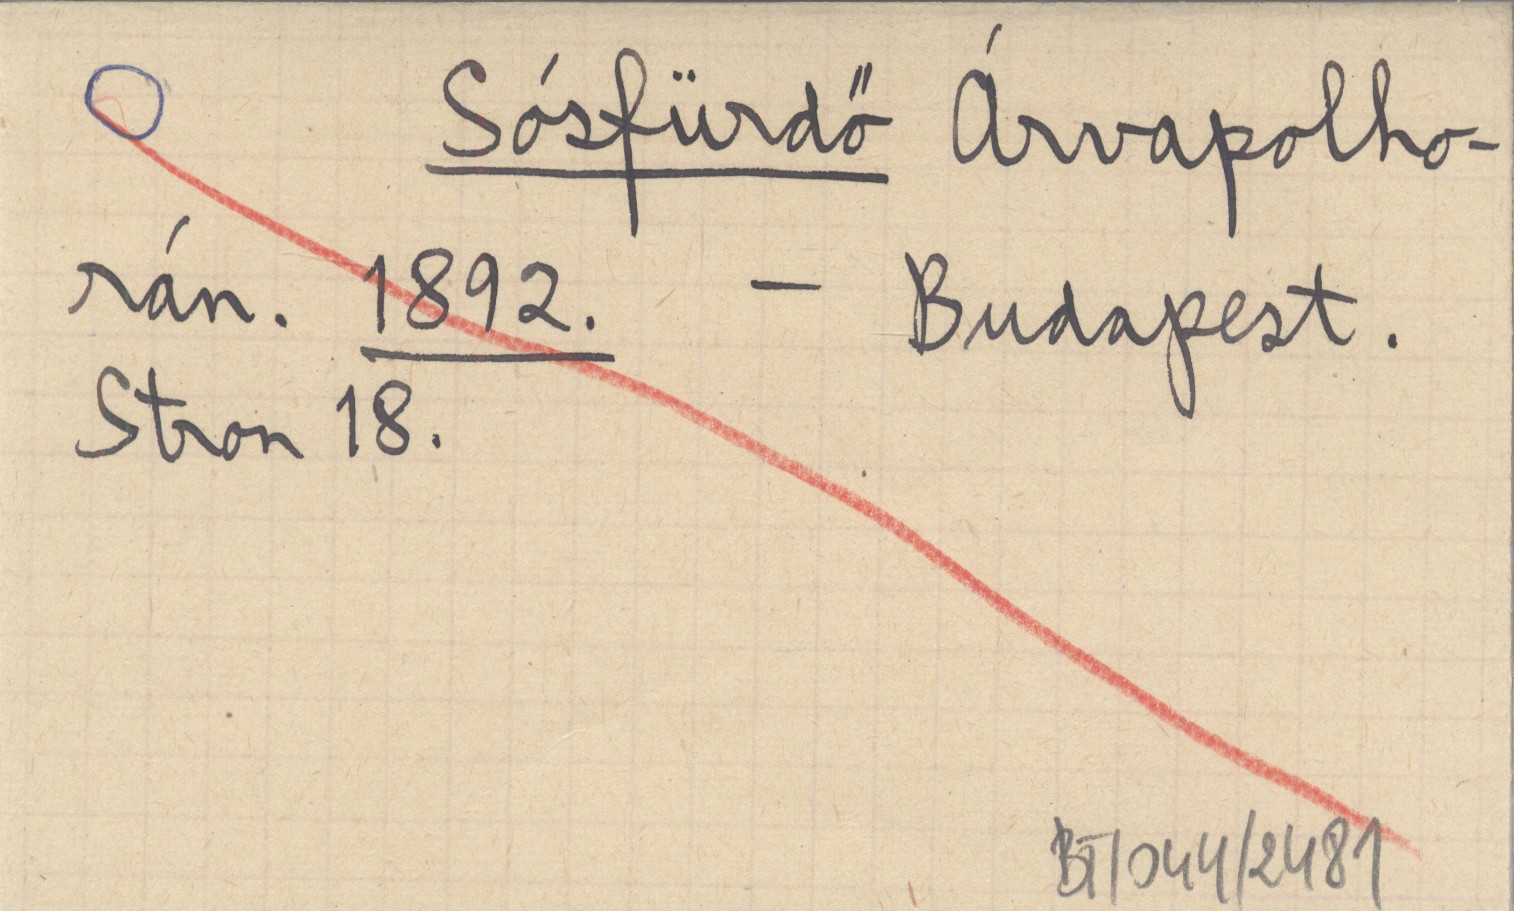 Sósfürdő Árvapolho-
rán. 1892. — Budapest.
Stron 18.
BT/044/2481